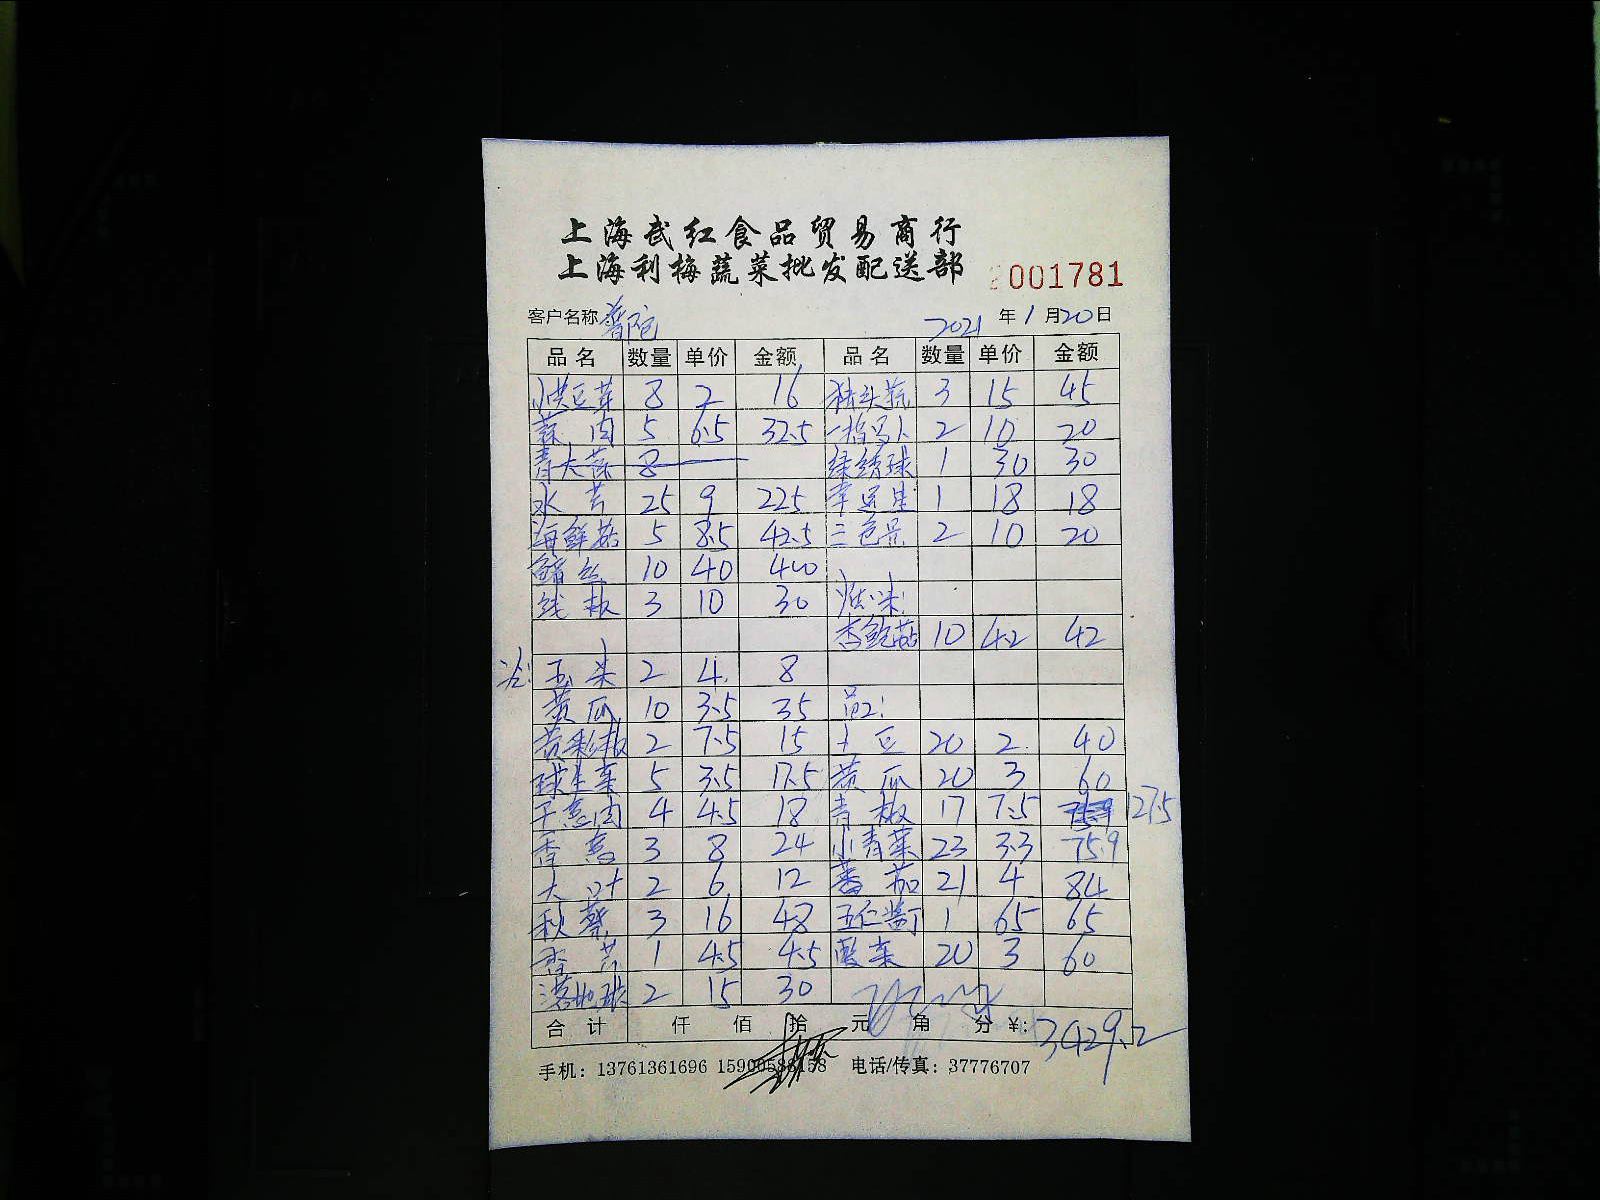 上海武红食品贸易商行
上海利梅蔬菜批发配送部
001781
客户名称 普陀 2021 年 1 月 20 日
品名 数量 单价 金额 品名 数量 单价 金额
小洪豆芽 8 2 16 3 15 45
蒜肉 5 6.5 32.5 2 10 20
青大蒜 8 绿绣球 1 30 30
水芹 25 9 225 幸运星 1 18 18
海鲜菇 5 8.5 42.5 三色堇 2 10 20
鳝丝 10 40 400
线椒 3 10 30
杏鲍菇 10 4.2 42
玉米 2 4 8
黄瓜 10 3.5 35
黄彩椒 2 7.5 15 土豆 20 2 40
球生菜 5 3.5 17.5 黄瓜 20 3 60
干葱肉 4 4.5 18 青椒 17 7.5 127.5
香葱 3 8 24 小青菜 23 3.3 75.9
大叶 2 6 12 蕃茄 21 4 84
秋葵 3 16 48 五仁酱丁 1 65 65
香芹 1 4.5 4.5 酸菜 20 3 60
2 15 30
合计 仟 佰 拾 元 角 分 ¥: 3429.2
手机：13761361696 15900586158 电话/传真：37776707